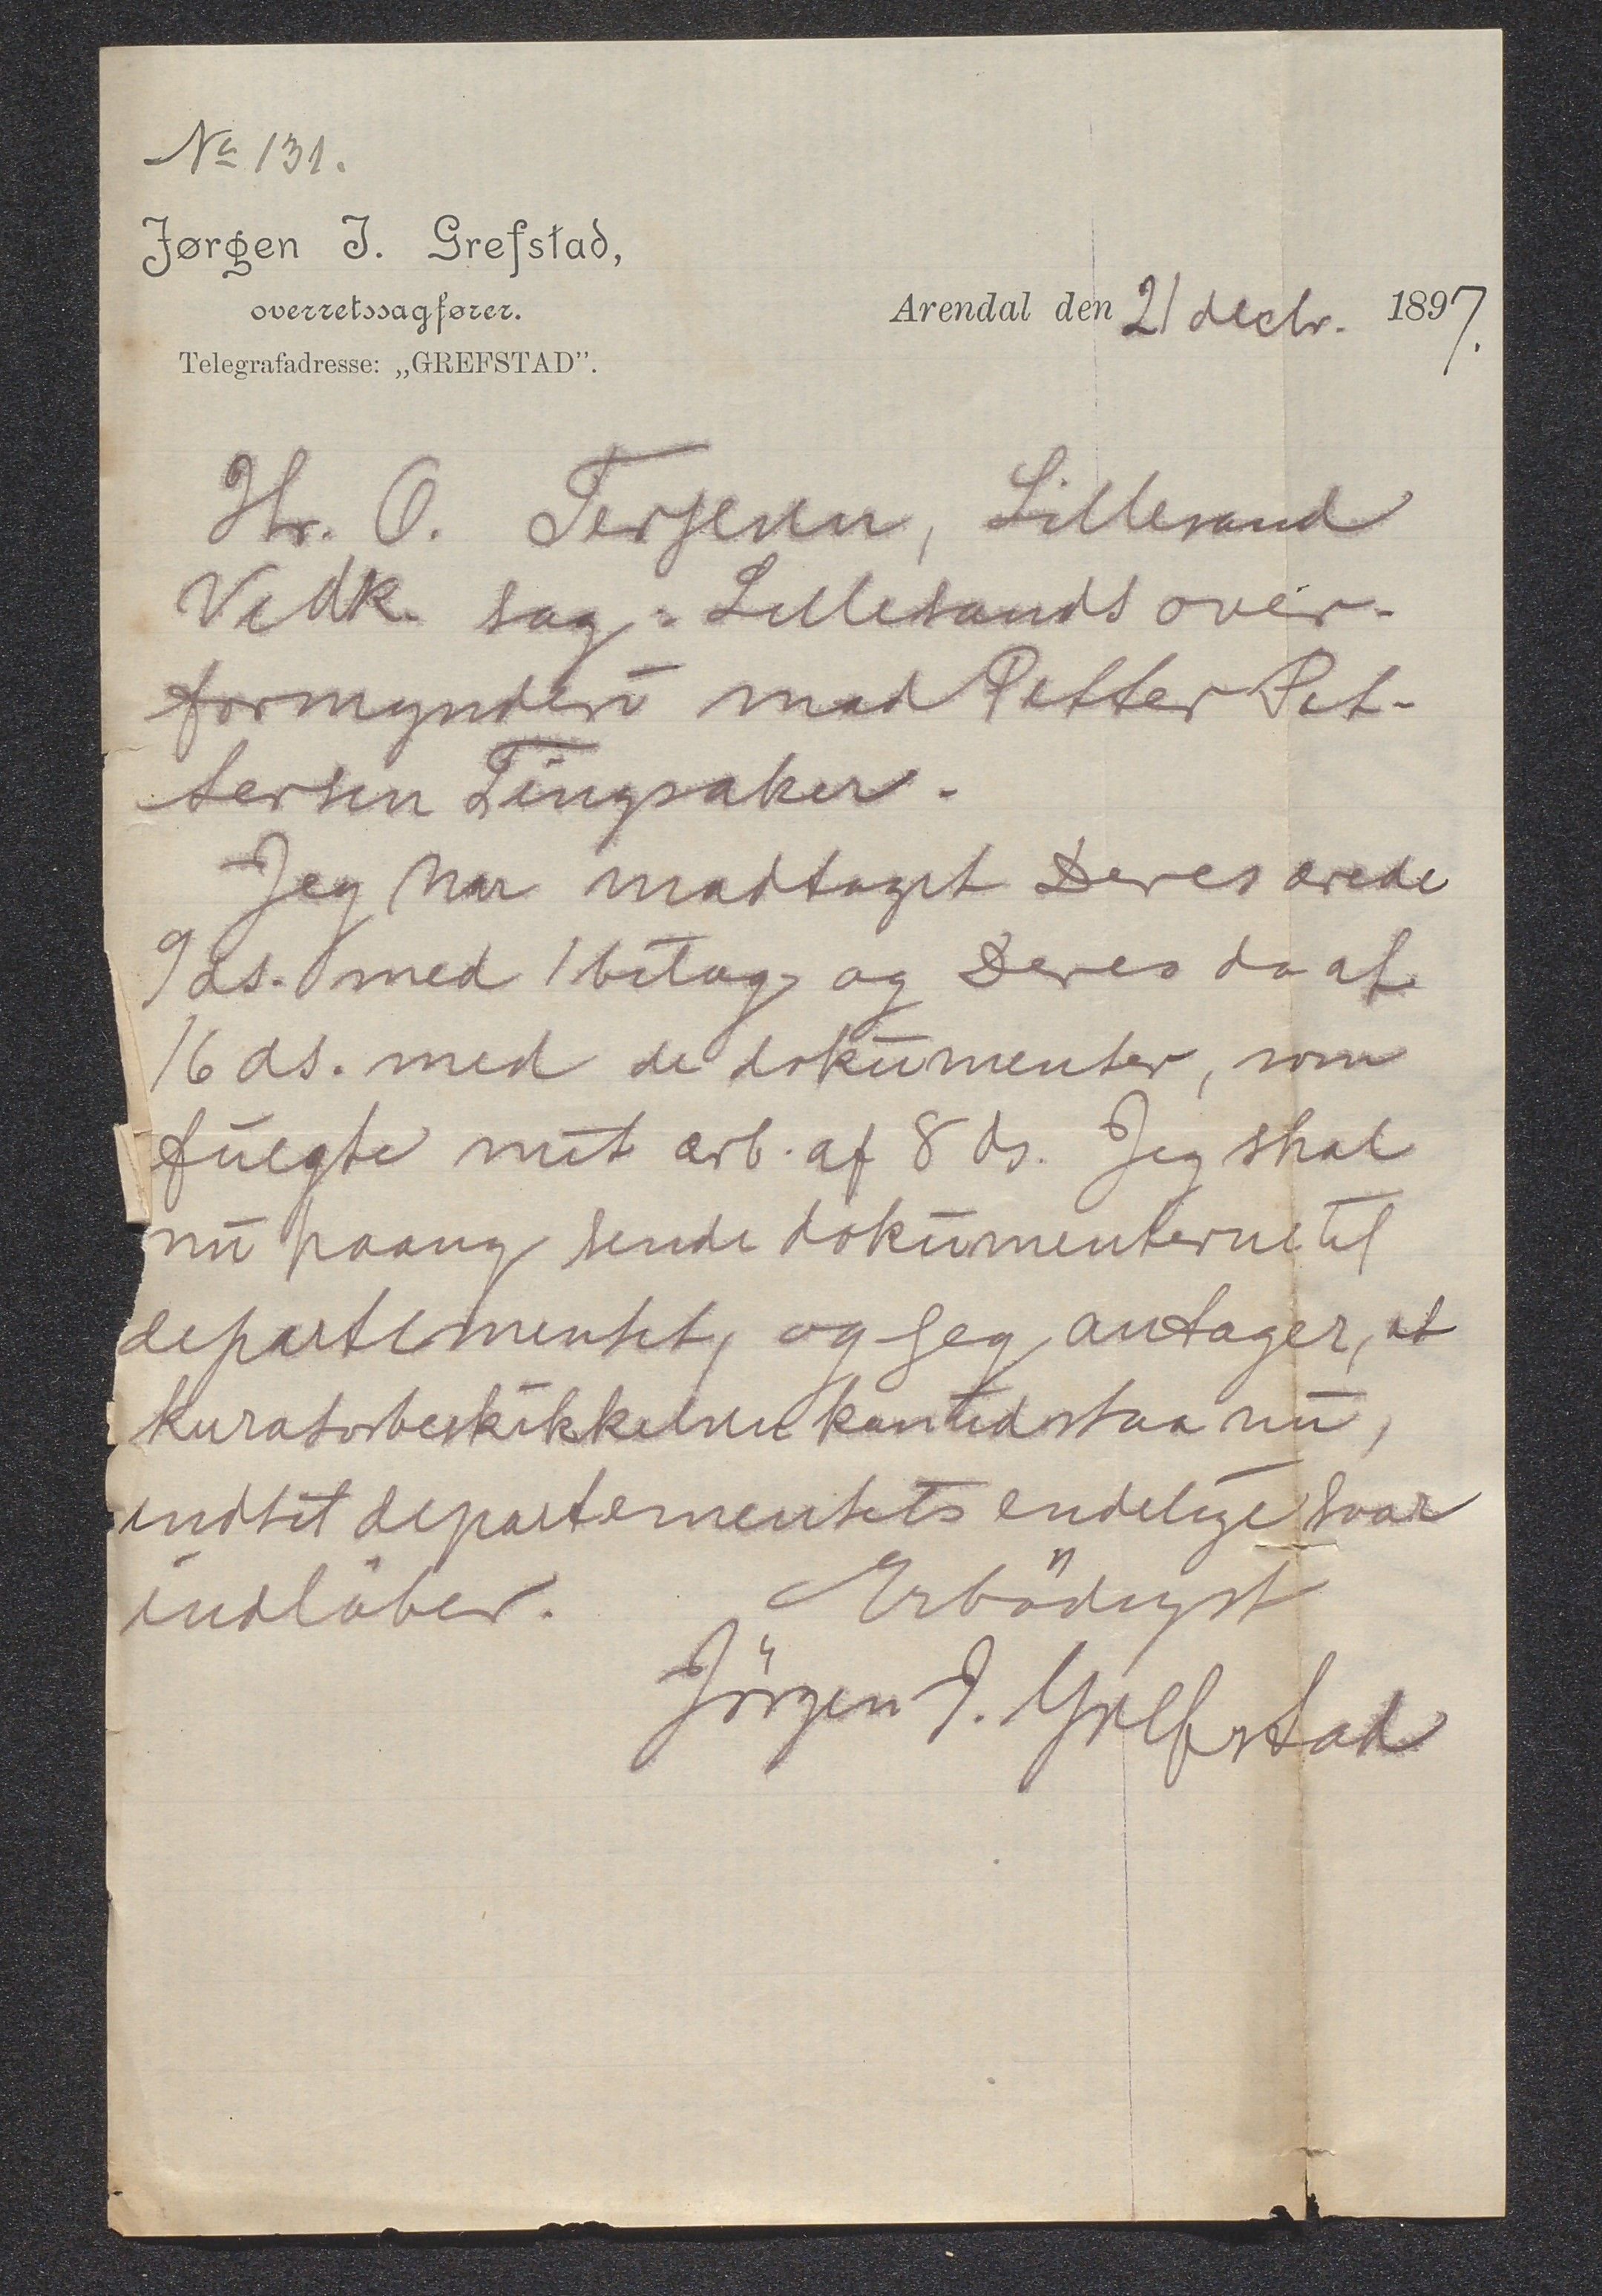 No 131.
Jørgen J. Grefstad,
overretssagfører.
Telegrafadresse: „GREFSTAD”.
Arendal den 21 decbr. 1897.
Hr. O. Terjesen, Lillesand
Vedk. sag: Lillesands over-
formynderi mod Petter Pet-
tersen Tingsaker.
Jeg har modtaget Deres ærede
9 ds. med 1 bilag og Deres do af
16 ds. med de dokumenter, som
fulgte mit ærb. af 8 ds. Jeg skal
nu paany sende dokumenterne til
departementet, og jeg antager, at
kuratorbeskikkelsen kan udstaa nu,
indtil departementets endelige svar
indløber. Ærbödigst
Jörgen J. Grefstad